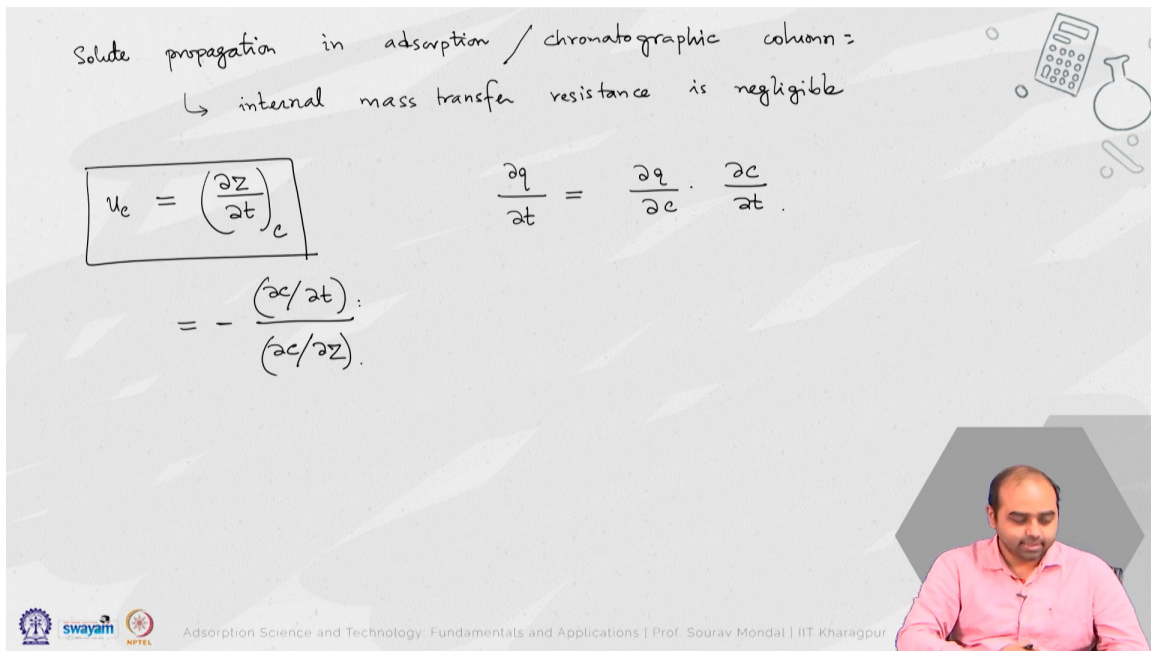 Solute propagation in adsorption / chromatographic column =
↳ internal mass transfer resistance is negligible
u_c = (∂z/∂t)_c
∂q/∂t = ∂q/∂c · ∂c/∂t .
= - (∂c/∂t) / (∂c/∂z) .
swayam
NPTEL
Adsorption Science and Technology: Fundamentals and Applications | Prof. Sourav Mondal | IIT Kharagpur